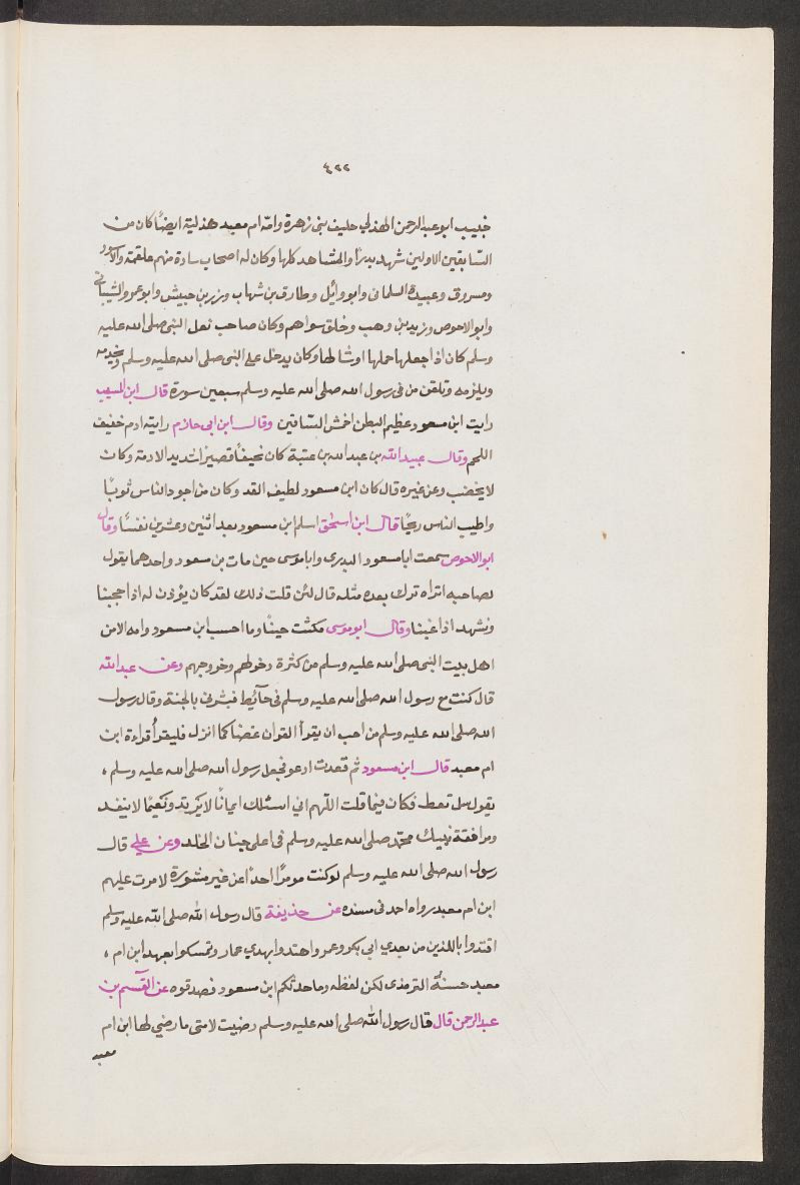 ٤٢٢
خبيب ابو عبد الرحمن الهذلي حليف بني زهرة وامه ام معبد هذلية ايضاً كان من
السابقين الاولين شهد بدراً والمشاهد كلها وكان له اصحاب سادة منهم علقمة والاسود
ومسروق وعبيدة السلماني وابو وايل وطارق بن شهاب وزر بن حبيش وابو عمرو الشيباني
وابو الاحوص وزيد بن وهب وخلق سواهم وكان صاحب نعل النبي صلى الله عليه
وسلم كان اذا جعلها حملها او شالها وكان يدخل على النبي صلى الله عليه وسلم ويخدمه
ويلزمه وتلقن من في رسول الله صلى الله عليه وسلم سبعين سورة قال ابن المسيب
رايت ابن مسعود عظيم البطن احمش الساقين وقال ابن ابي حازم رايته ادم خفيف
اللحم وقال عبيد الله بن عبد الله بن عتبة كان نحيفاً قصيرا شديد الادمة وكان
لا يخضب وعن غيره قال كان ابن مسعود لطيف القد وكان من اجود الناس ثوبًا
واطيب الناس ريحًا قال ابن اسحق اسلم ابن مسعود بعد اثنين وعشرين نفسًا وقال
ابو الاحوص سمعت ابا مسعود البدري وابا موسى حين مات بن مسعود واحدهما يقول
لصاحبه اتراه ترك بعده مثله قال لئن قلت ذلك لقد كان يؤذن له اذا حجبنا
ونشهد اذا غبنا وقال ابو موسى مكثت حينًا وما احسب ابن مسعود وامه الا من
اهل بيت النبي صلى الله عليه وسلم من كثرة دخولهم وخروجهم وعن عبد الله
قال كنت مع رسول الله صلى الله عليه وسلم في حآئط فبشرني بالجنة وقال رسول
الله صلى الله عليه وسلم من احب ان يقرأ القران غضا كما انزل فليقرأ قراءة ابن
ام معبد قال ابن مسعود ثم قعدت ادعو فجعل رسول الله صلى الله عليه وسلم ،
يقول سل تعط فكان فيما قلت اللهم اني اسئلك ايمانًا لا يرتد ونعيمًا لا ينفد
ومرافقة نبيك محمد صلى الله عليه وسلم في اعلى جنان الخلد وعن علي قال
رسول الله صلى الله عليه وسلم لو كنت مومرًا احدًا عن غير مشورة لامرت عليهم
ابن ام معبد رواه احمد في مسنده عن حذيفة قال رسول الله صلى الله عليه وسلم
اقتدوا باللذين من بعدي ابي بكر وعمر واهتدوا بهدي عمار وتمسكوا بعهد ابن ام ،
معبد حسنه الترمذي لكن لفظه وما حدثكم ابن مسعود فصدقوه عن القسم بن
عبد الرحمن قال قال رسول الله صلى الله عليه وسلم رضيت لامتي ما رضي لها ابن ام
معبد